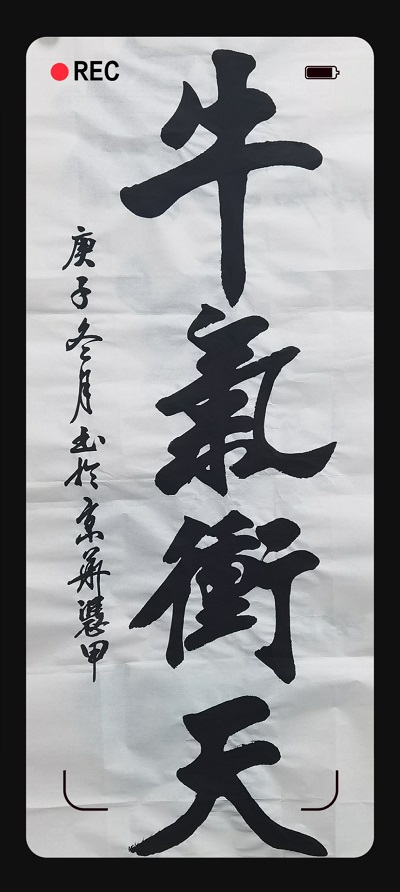 REC
牛氣衝天
庚子冬月書於京華裝甲